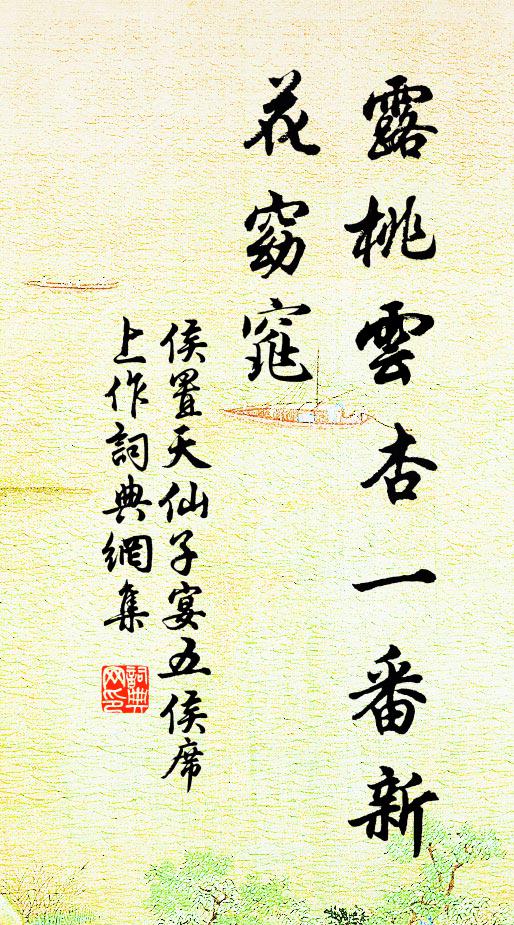 露桃雲杏一番新
花窈窕
侯置天仙子宴五侯席
上作詞典網集
詞典网印